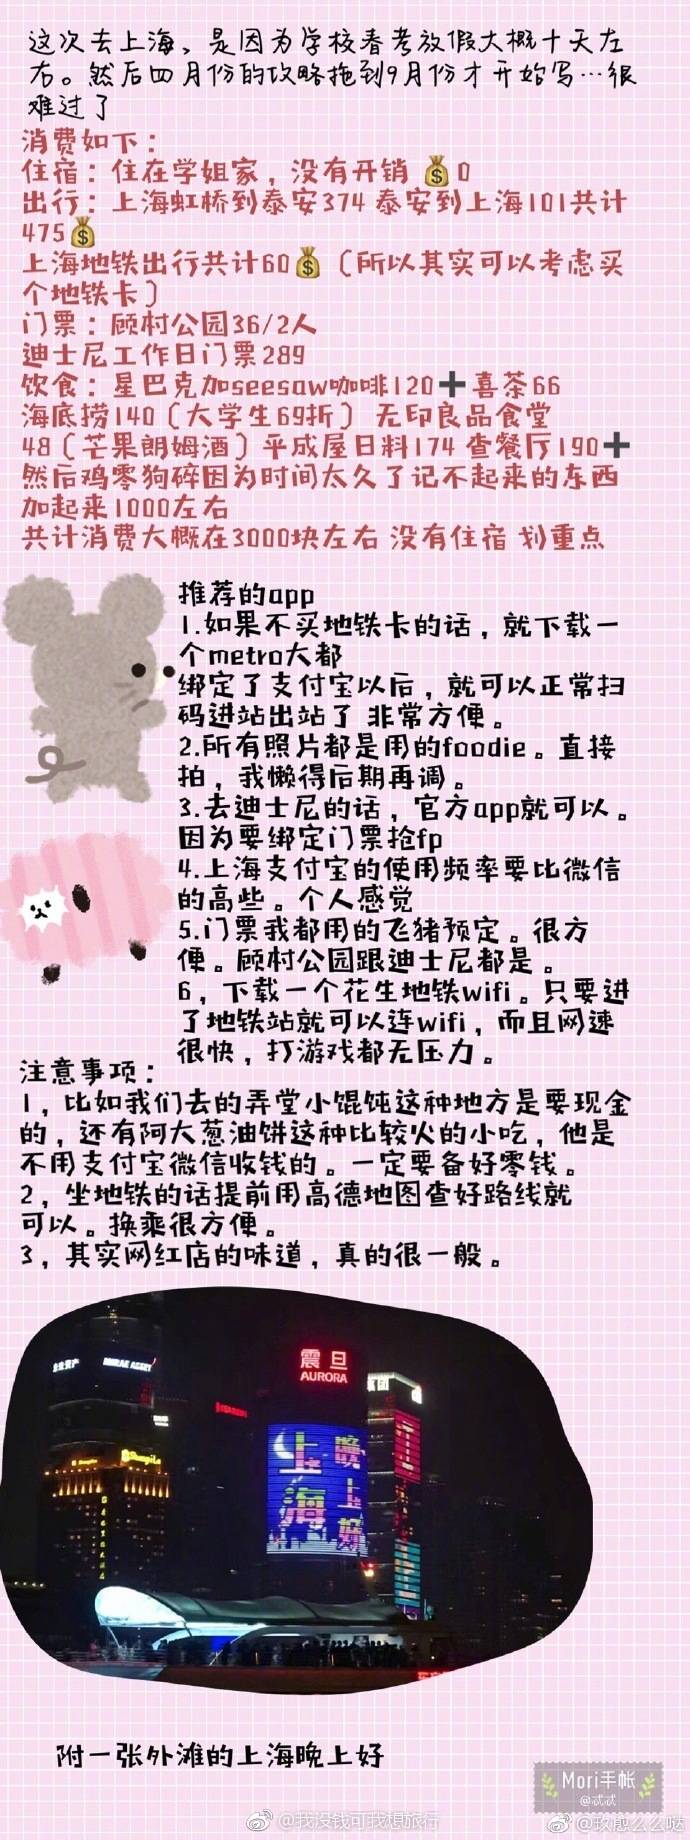 这次去上海，是因为学校春考放假大概十天左
右。然后四月份的攻略拖到9月份才开始写…很
难过了
消费如下：
住宿：住在学姐家，没有开销 💰0
出行：上海虹桥到泰安374 泰安到上海101共计
475💰
上海地铁出行共计60💰（所以其实可以考虑买
个地铁卡）
门票：顾村公园36/2人
迪士尼工作日门票289
饮食：星巴克加seesaw咖啡120➕喜茶66
海底捞140（大学生69折） 无印良品食堂
48（芒果朗姆酒）平成屋日料174 查餐厅190➕
然后鸡零狗碎因为时间太久了记不起来的东西
加起来1000左右
共计消费大概在3000块左右 没有住宿 划重点
推荐的app
1.如果不买地铁卡的话，就下载一
个metro大都
绑定了支付宝以后，就可以正常扫
码进站出站了 非常方便。
2.所有照片都是用的foodie。直接
拍，我懒得后期再调。
3.去迪士尼的话，官方app就可以。
因为要绑定门票抢fp
4.上海支付宝的使用频率要比微信
的高些。个人感觉
5.门票我都用的飞猪预定。很方
便。顾村公园跟迪士尼都是。
6，下载一个花生地铁wifi。只要进
了地铁站就可以连wifi，而且网速
很快，打游戏都无压力。
注意事项：
1，比如我们去的弄堂小馄饨这种地方是要现金
的，还有阿大葱油饼这种比较火的小吃，他是
不用支付宝微信收钱的。一定要备好零钱。
2，坐地铁的话提前用高德地图查好路线就
可以。换乘很方便。
3，其实网红店的味道，真的很一般。
震旦
AURORA
MIRAE ASSET
集团
ShangriLa
晚上好
上海
附一张外滩的上海晚上好
Mori手帐
@忒忒
@我没钱可我想旅行
@玖愈么么哒